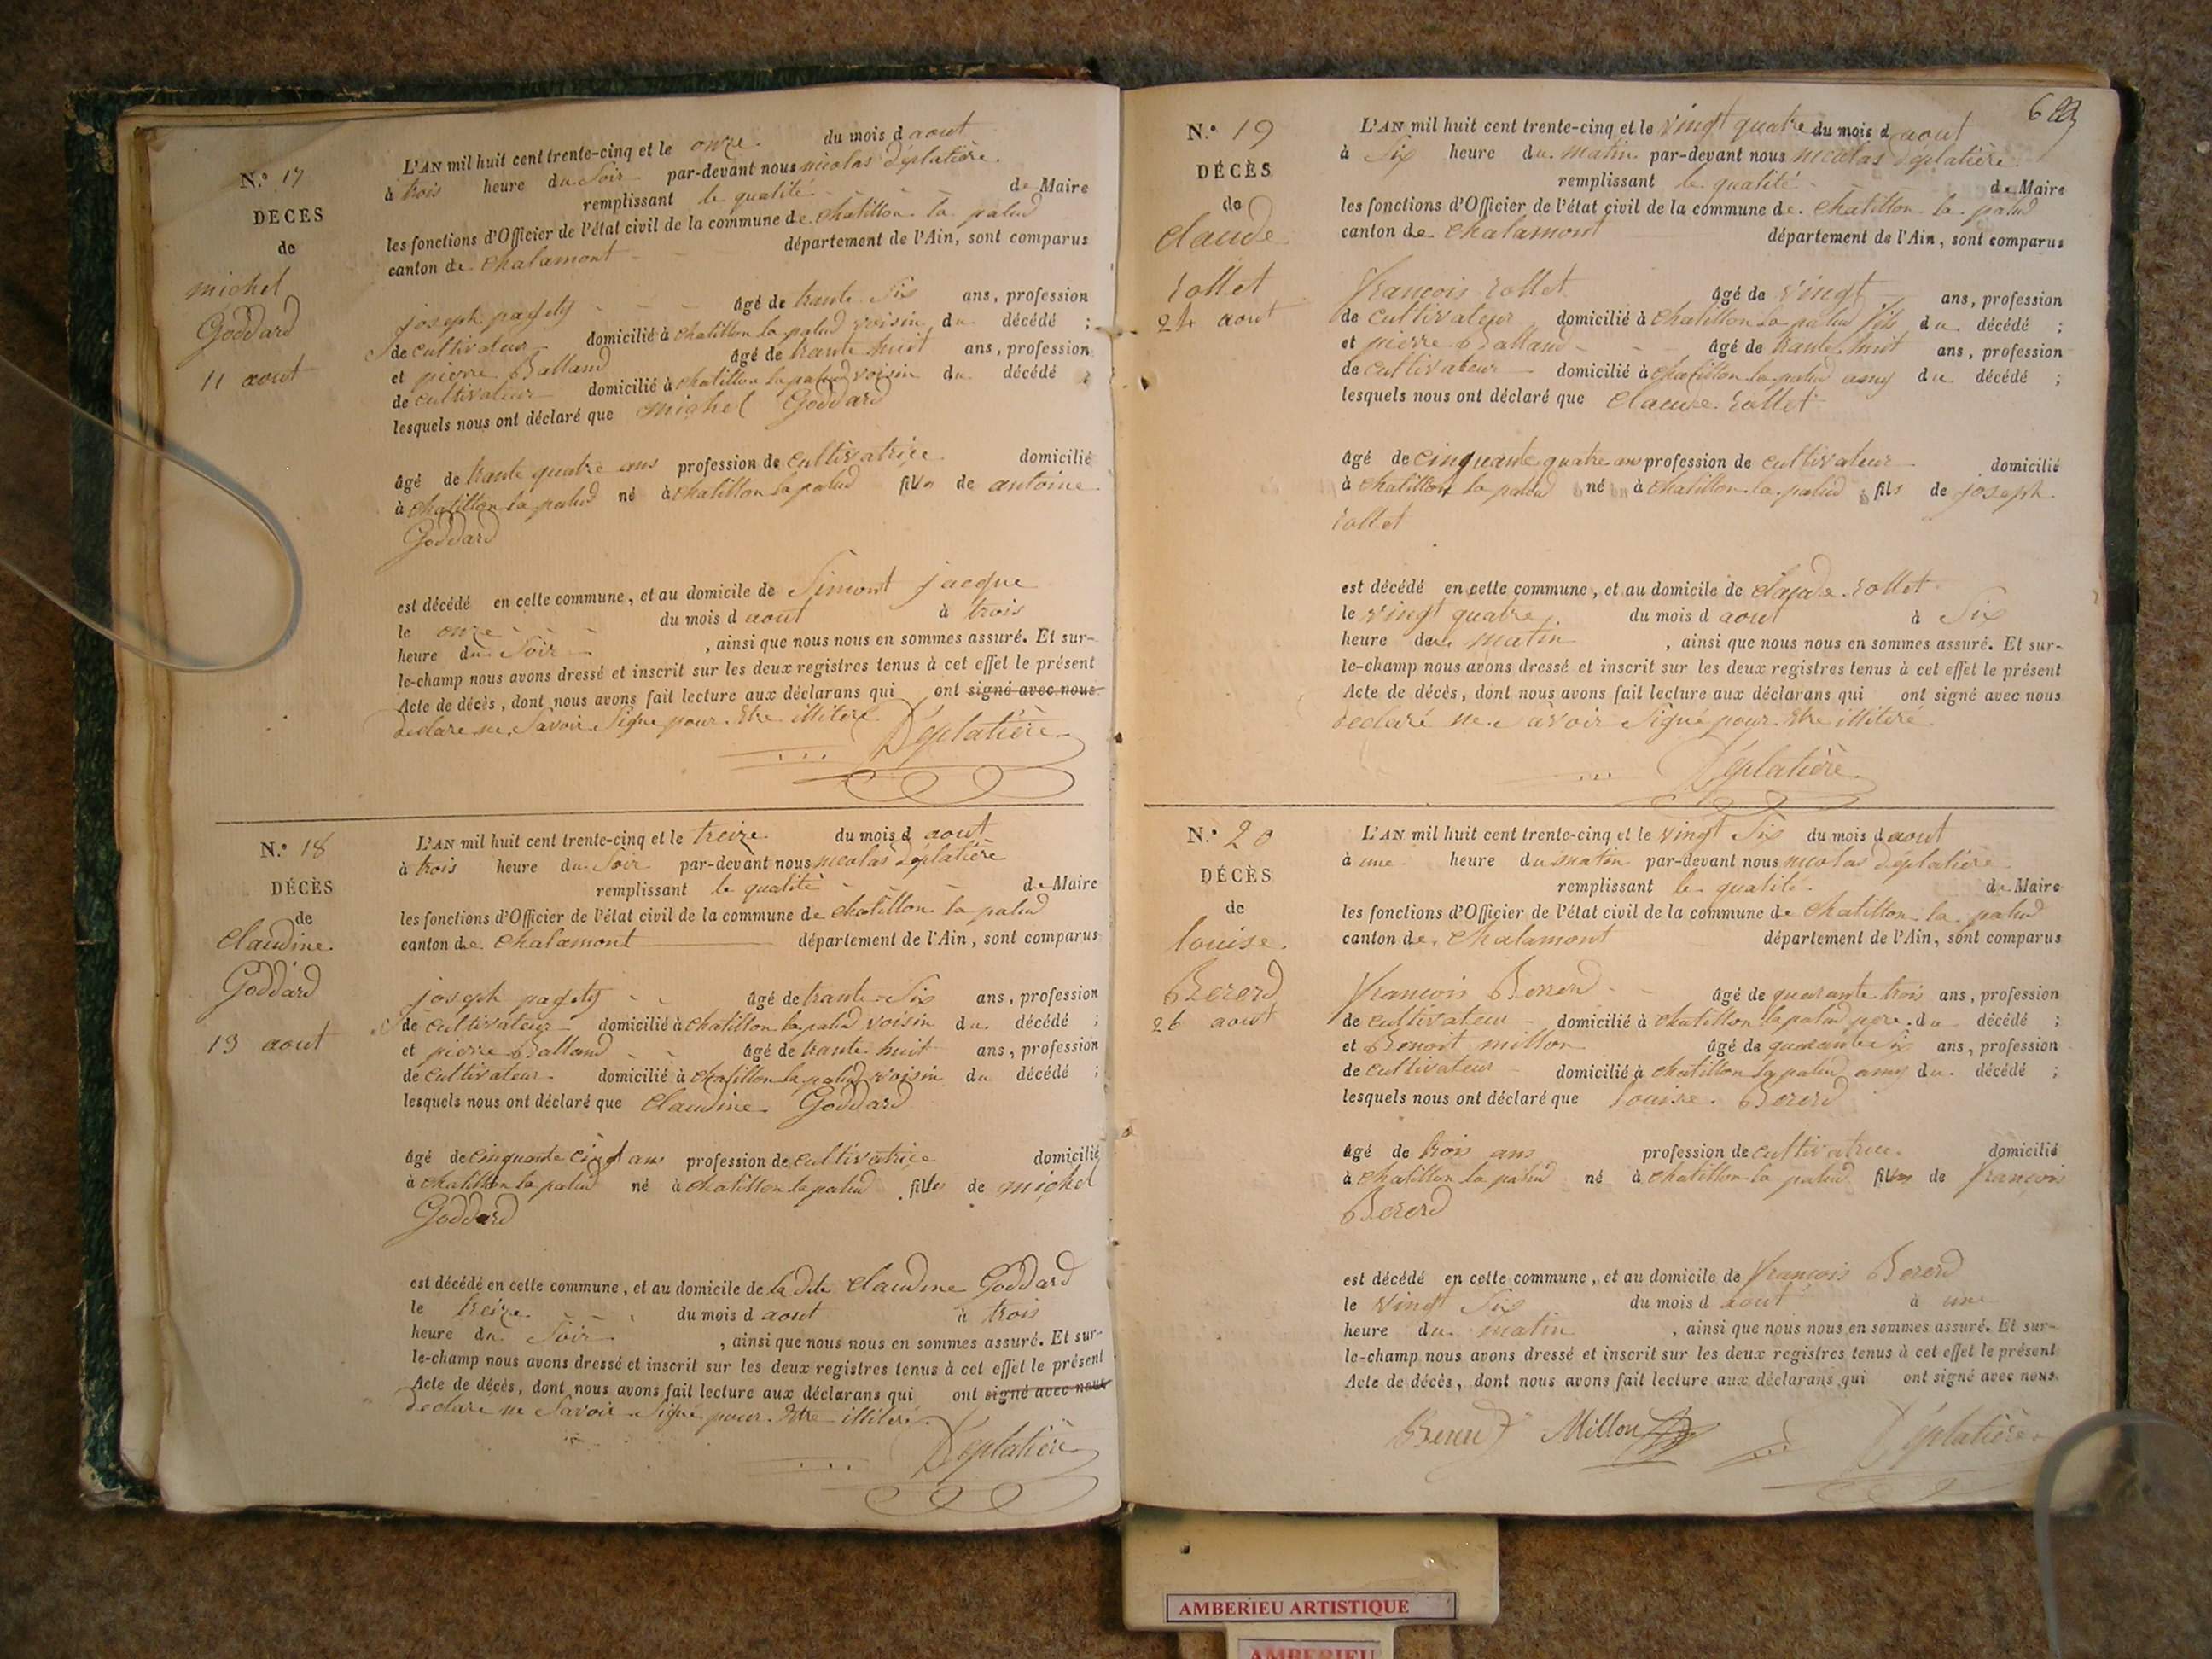 N.° 17
DECES
de
michel
Goddard
11 aout
L'AN mil huit cent trente-cinq et le onze du mois d aout
à trois heure du Soir par-devant nous nicolas Déplatière
remplissant le qualité de Maire
les fonctions d'Officier de l'état civil de la commune de chatillon la palud
canton de chalamont département de l'Ain, sont comparus
joseph pagety âgé de trante Six ans, profession
de cultivateur domicilié à chatillon la palud voisin du décédé ;
et pierre Balland âgé de trante huit ans, profession
de cultivateur domicilié à chatillon la palud voisin du décédé ;
lesquels nous ont déclaré que michel Goddard
âgé de trante quatre ans profession de cultivatrice domicilié
à chatillon la palud né à chatillon la palud de antoine
Goddard
est décédé en cette commune, et au domicile de Simont jacque
le onze du mois d aout à trois
heure du Soir , ainsi que nous nous en sommes assuré. Et sur-
le-champ nous avons dressé et inscrit sur les deux registres tenus à cet effet le présent
Acte de décès, dont nous avons fait lecture aux déclarans qui ont signé avec nous
declare ne Savoir Signe pour Etre illiteré
Déplatière
N.° 18
DÉCÈS
de
claudine
Goddard
13 aout
L'AN mil huit cent trente-cinq et le treize du mois d aout
à trois heure du Soir par-devant nous nicolas Déplatière
remplissant le qualité de Maire
les fonctions d'Officier de l'état civil de la commune de chatillon la palud
canton de chalamont département de l'Ain, sont comparus
joseph pagety âgé de trante Six ans, profession
de cultivateur domicilié à chatillon la palud voisin du décédé ;
et pierre Balland âgé de trante huit ans, profession
de cultivateur domicilié à chatillon la palud voisin du décédé ;
lesquels nous ont déclaré que claudine Goddard
âgé de cinquante cinq ans profession de cultivatrice domicilié
à chatillon la palud né à chatillon la palud de michel
Goddard
est décédé en cette commune, et au domicile de la dite claudine Goddard
le treize du mois d aout à trois
heure du Soir , ainsi que nous nous en sommes assuré. Et sur-
le-champ nous avons dressé et inscrit sur les deux registres tenus à cet effet le présent
Acte de décès, dont nous avons fait lecture aux déclarans qui ont signé avec nous
declare ne Savoir Signé pour Etre illiteré
Déplatière
N.° 19
DÉCÈS
de
claude
rollet
24 aout
L'AN mil huit cent trente-cinq et le vingt quatre du mois d aout
à Six heure du matin par-devant nous nicolas Déplatière
remplissant le qualité de Maire
les fonctions d'Officier de l'état civil de la commune de chatillon la palud
canton de chalamont département de l'Ain, sont comparus
francois rollet âgé de vingt ans, profession
de cultivateur domicilié à chatillon la palud fils du décédé ;
et pierre Balland âgé de trante huit ans, profession
de cultivateur domicilié à chatillon la palud amy du décédé ;
lesquels nous ont déclaré que claude rollet
âgé de cinquante quatre ans profession de cultivateur domicilié
à chatillon la palud né à chatillon la palud fils de joseph
rollet
est décédé en cette commune, et au domicile de claude rollet
le vingt quatre du mois d aout à Six
heure du matin , ainsi que nous nous en sommes assuré. Et sur-
le-champ nous avons dressé et inscrit sur les deux registres tenus à cet effet le présent
Acte de décès, dont nous avons fait lecture aux déclarans qui ont signé avec nous
declaré ne savoir Signé pour Etre illiteré
Déplatière
N.° 20
DÉCÈS
de
louise
Bererd
26 aout
L'AN mil huit cent trente-cinq et le vingt Six du mois d aout
à une heure du matin par-devant nous nicolas Déplatière
remplissant le qualité de Maire
les fonctions d'Officier de l'état civil de la commune de chatillon la palud
canton de chalamont département de l'Ain, sont comparus
francois Bererd âgé de quarante trois ans, profession
de cultivateur domicilié à chatillon la palud pere du décédé ;
et Benoit millon âgé de quarante ans, profession
de cultivateur domicilié à chatillon la palud amy du décédé ;
lesquels nous ont déclaré que louise Bererd
âgé de trois ans profession de cultivatrice domicilié
à chatillon la palud né à chatillon la palud de francois
Bererd
est décédé en cette commune, et au domicile de francois Bererd
le vingt Six du mois d aout à une
heure du matin , ainsi que nous nous en sommes assuré. Et sur-
le-champ nous avons dressé et inscrit sur les deux registres tenus à cet effet le présent
Acte de décès, dont nous avons fait lecture aux déclarans qui ont signé avec nous
Millon Déplatière
AMBERIEU ARTISTIQUE
AMBERIEU